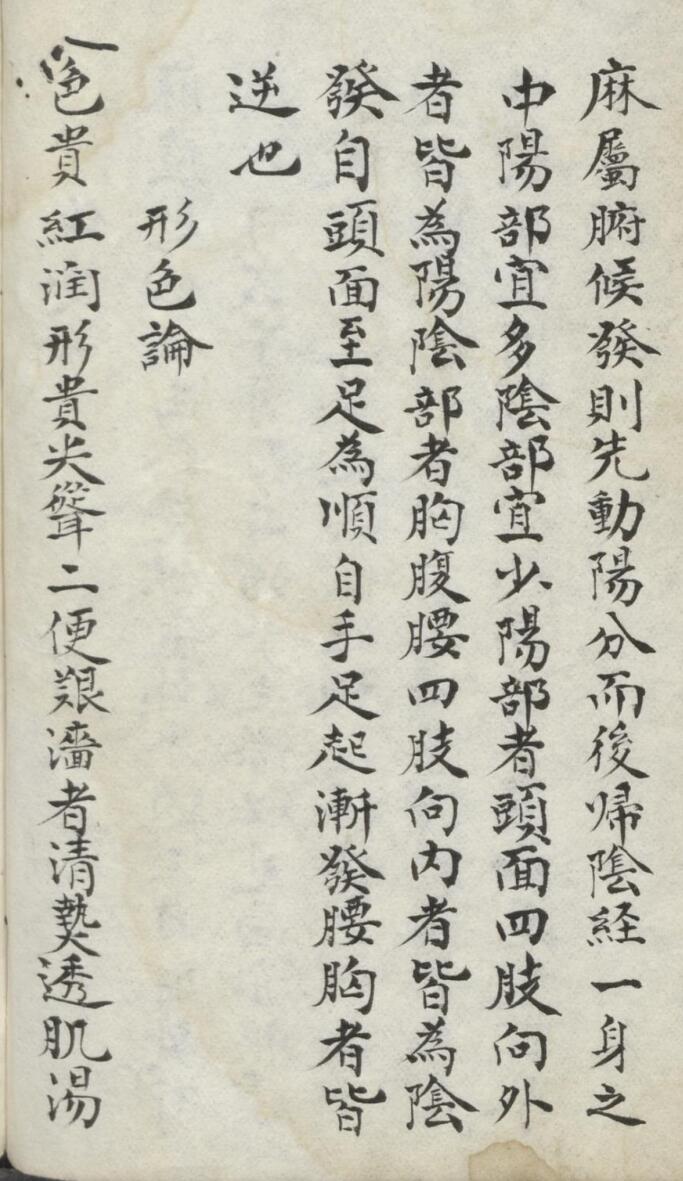 麻屬腑候發則先動陽分而後帰陰経一身之
中陽部宜多陰部宜少陽部者頭面四肢向外
者皆為陽陰部者胸腹腰四肢向内者皆為陰
發自頭面至足為順自手足起漸發腰胸者皆
逆也
形色論
色貴紅润形貴尖聳二便艱濇者清𤍠透肌湯